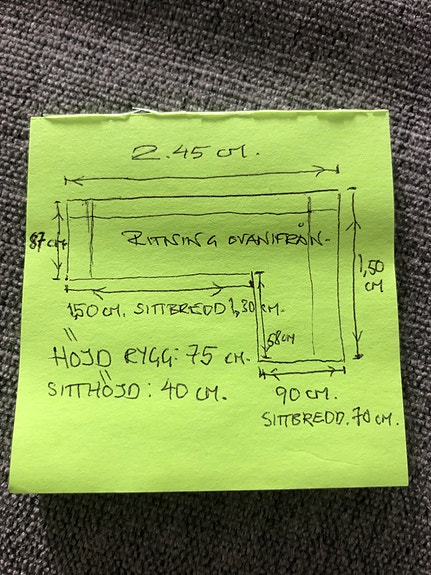 2.45 CM.
87 CM
RITNING OVANIFRÅN-
1,50 CM
150 CM. SITTBREDD 1,30 CM.
58CM
HÖJD RYGG: 75 CM.
SITTHÖJD: 40 CM.
90 CM.
SITTBREDD. 70 CM.